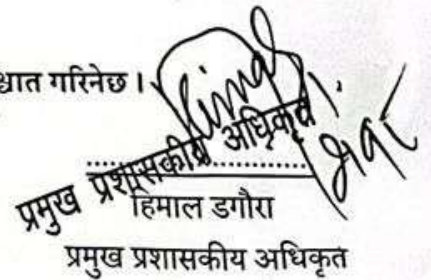 श्चात गरिनेछ ।
प्रमुख प्रशासकीय अधिकृत
हिमाल डगौरा
प्रमुख प्रशासकीय अधिकृत